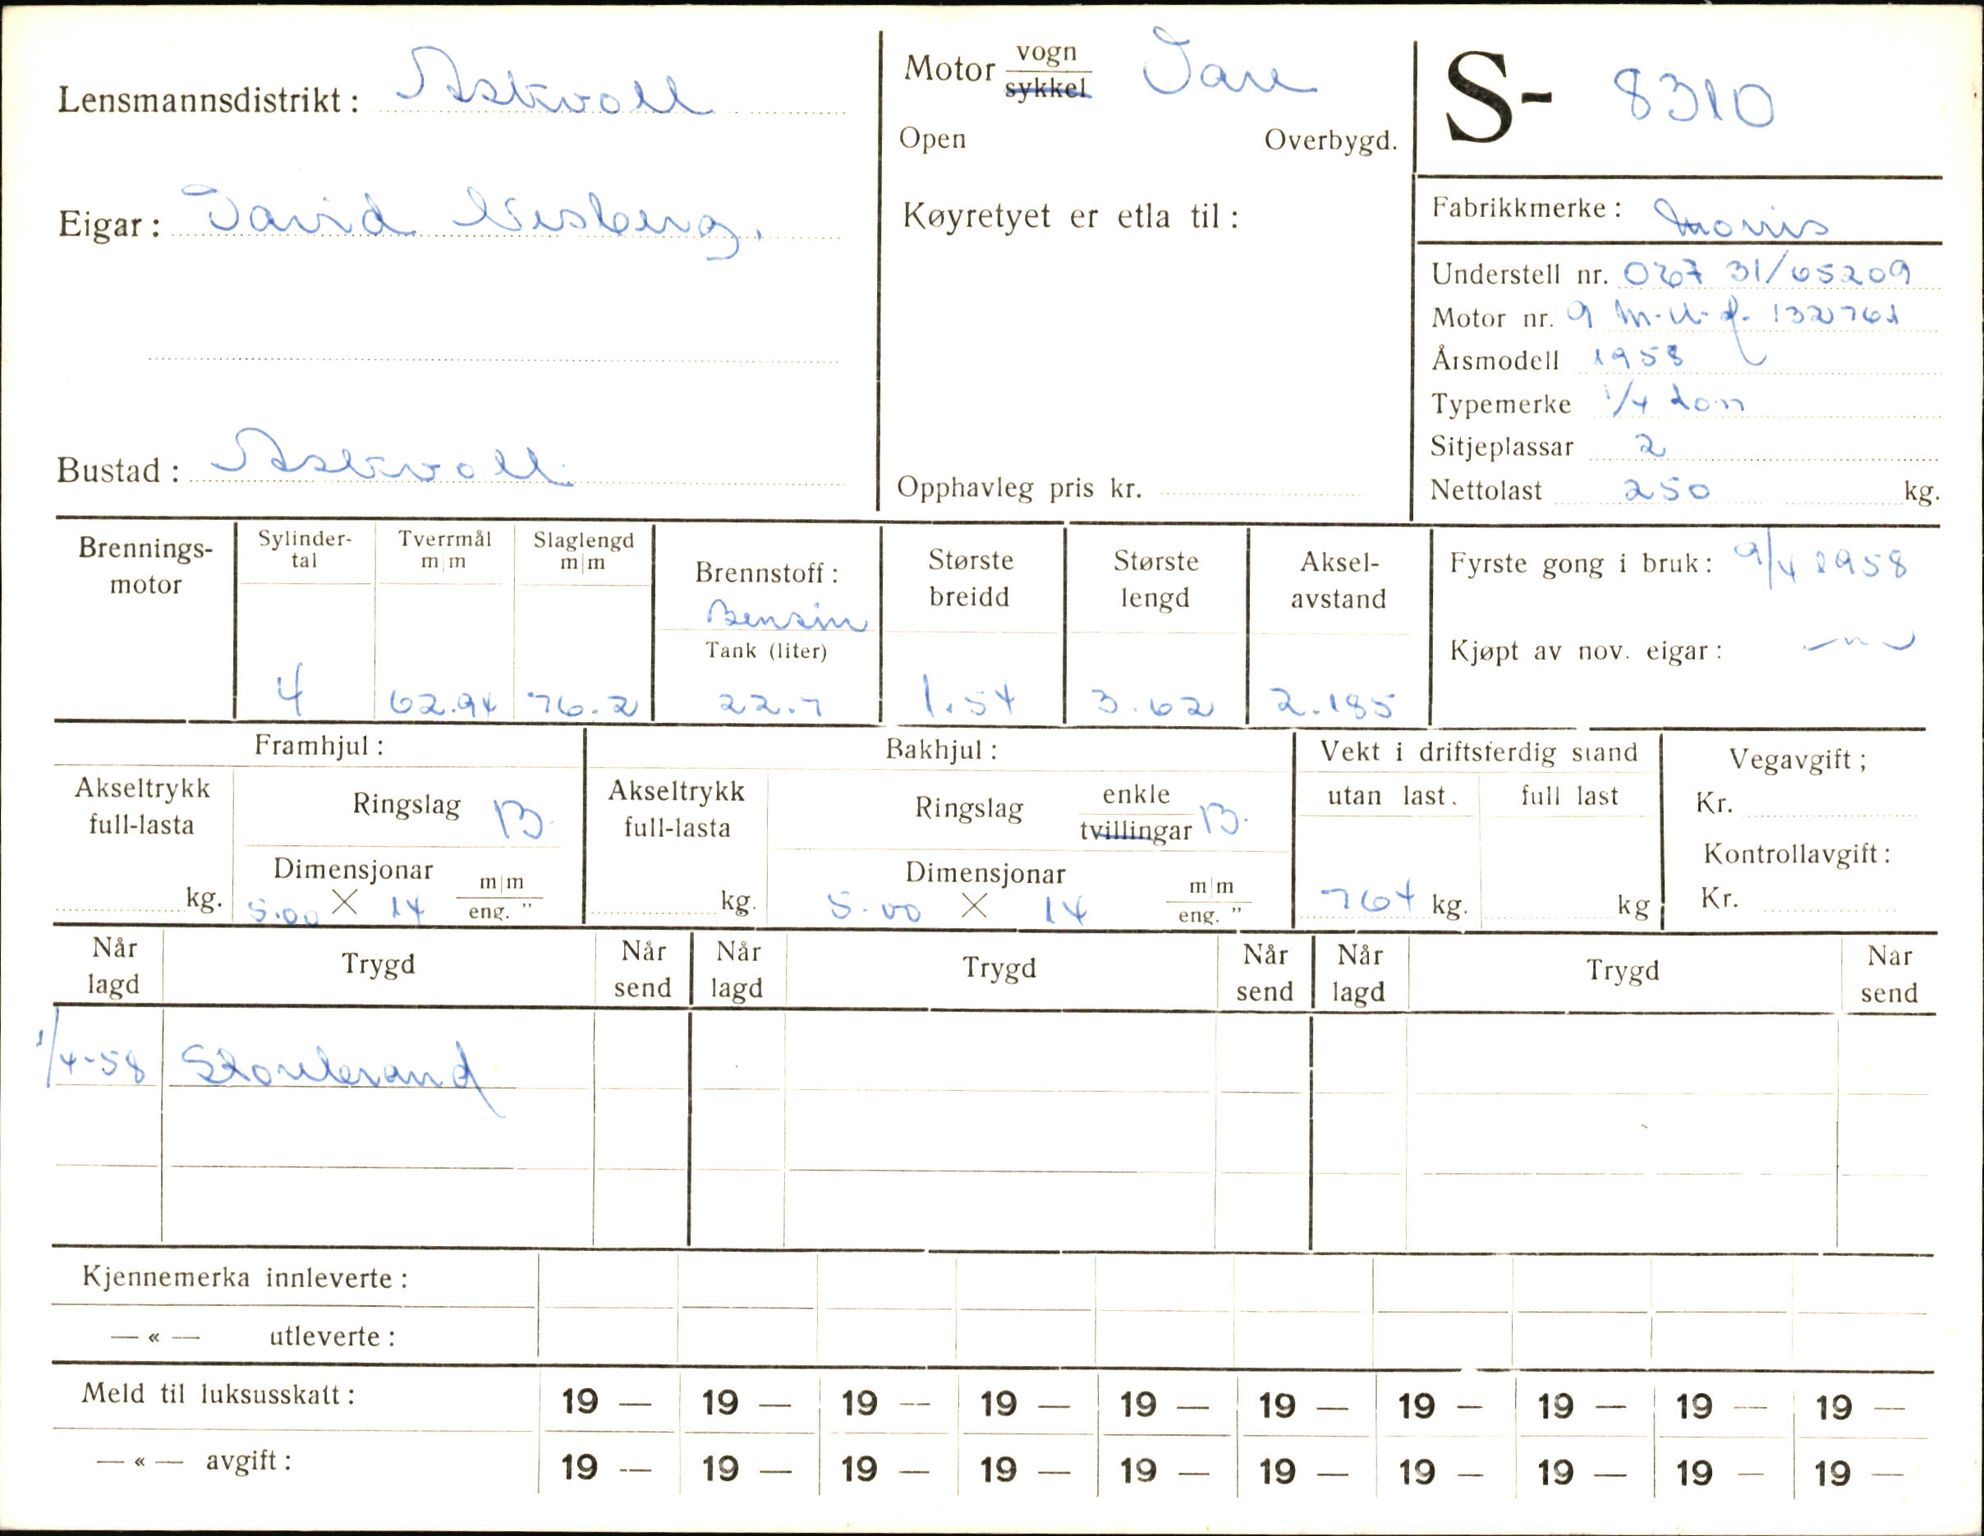 Lensmannsdistrikt: Askvoll
Eigar: David Nesberg.
Bustad: Askvoll
Motor vogn Vare
sykkel
Open Overbygd.
Køyretyet er etla til:
Opphavleg pris kr.
S- 8310
Fabrikkmerke: Morris
Understell nr. 31/65209
Motor nr. 9 132761
Årsmodell 1958
Typemerke 1/4 tonn
Sitjeplassar 2
Nettolast 250 kg.
Brennings-
motor
Sylinder-
tal
4
Tverrmål
m|m
62.94
Slaglengd
m|m
76.2
Brennstoff:
Bensin
Tank (liter)
22.7
Største
breidd
1.54
Største
lengd
3.62
Aksel-
avstand
2.185
Fyrste gong i bruk: 9/4 1958
Kjøpt av nov. eigar: — " —
Framhjul:
Akseltrykk
full-lasta
kg.
Ringslag B.
Dimensjonar m|m
5.00 X 14 eng. "
Bakhjul:
Akseltrykk
full-lasta
kg.
Ringslag enkle
tvillingar B.
Dimensjonar m|m
5.00 X 14 eng. "
Vekt i driftsferdig stand
utan last. full last
764 kg. kg
Vegavgift;
Kr.
Kontrollavgift:
Kr.
Når
lagd
Trygd
Når
send
Når
lagd
Trygd
Når
send
Når
lagd
Trygd
Nar
send
1/4-58 Storebrand
Kjennemerka innleverte:
— « — utleverte:
Meld til luksusskatt: 19 — 19 — 19 — 19 — 19 — 19 — 19 — 19 — 19 — 19 —
— « — avgift: 19 — 19 — 19 — 19 — 19 — 19 — 19 — 19 — 19 — 19 —